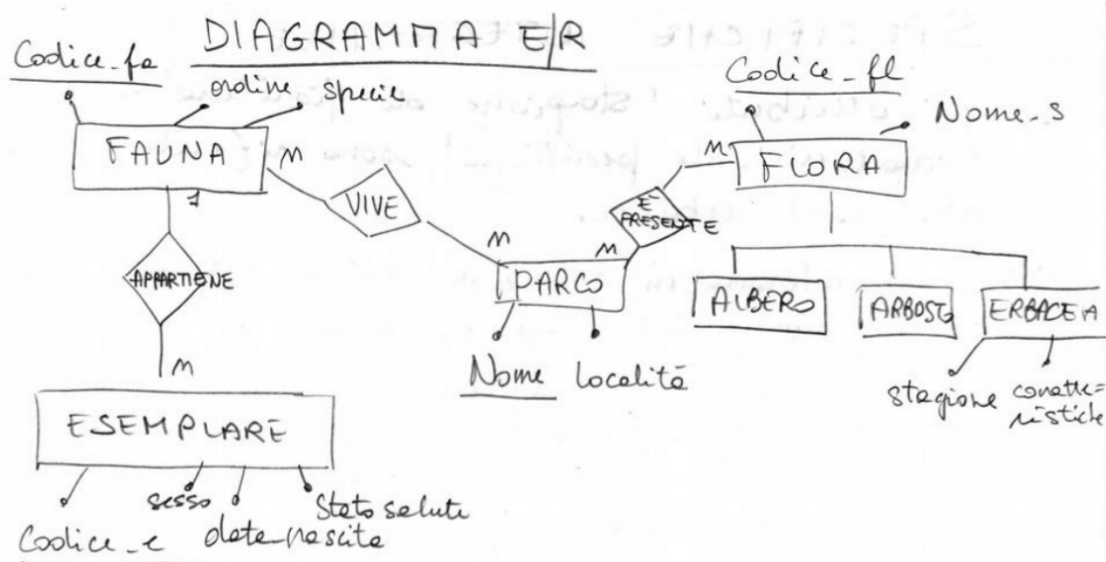 DIAGRAMMA E/R
Codice_fa
ordine specie
FAUNA
M
1
VIVE
APPARTIENE
M
ESEMPLARE
Codice_e
sesso
data_nascita
Stato salute
M
PARCO
M
Nome
Località
È PRESENTE
M
Codice_fl
Nome_s
FLORA
ALBERO
ARBUSTO
ERBACEA
stagione
caratte=
ristiche